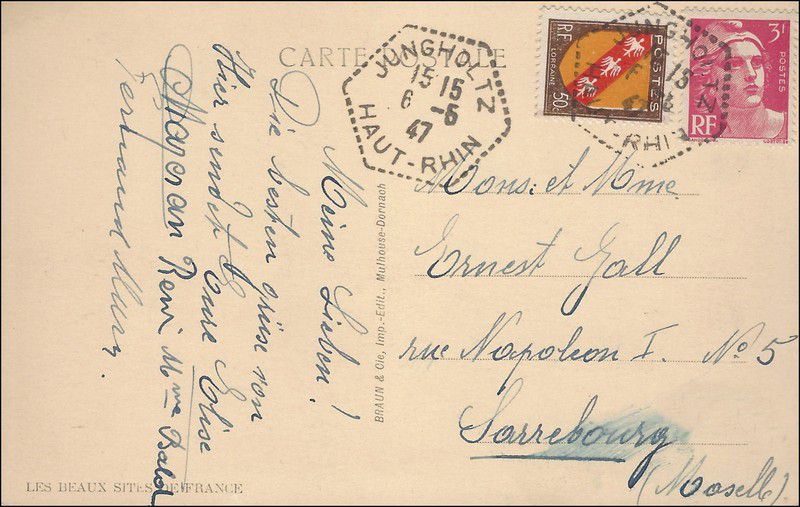 CARTE POSTALE
Meine Lieben!
Die besten grüse von
Hier sendet Eure Elise
René Mme
Fernand
BRAUN & Cie, Imp.-Edit., Mulhouse-Dornach
LES BEAUX SITES DE FRANCE
JUNGHOLTZ
15 15
6 -6
47
HAUT-RHIN
RF
POSTES
LORRAINE
50c
JUNGHOLTZ
15
47
HAUT-RHIN
3F
POSTES
RF
Mons: et Mme
Ernest Gall
rue Napoléon I. No 5
Sarrebourg
(Moselle)